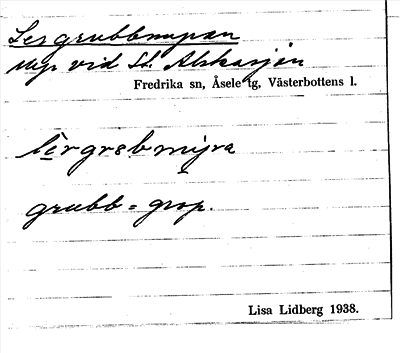 Lergrubbmyran
myr vid St. Alskasjön
Fredrika sn, Åsele tg, Västerbottens l.
lèrgrɵbmỳra
grubb = grop.
Lisa Lidberg 1938.